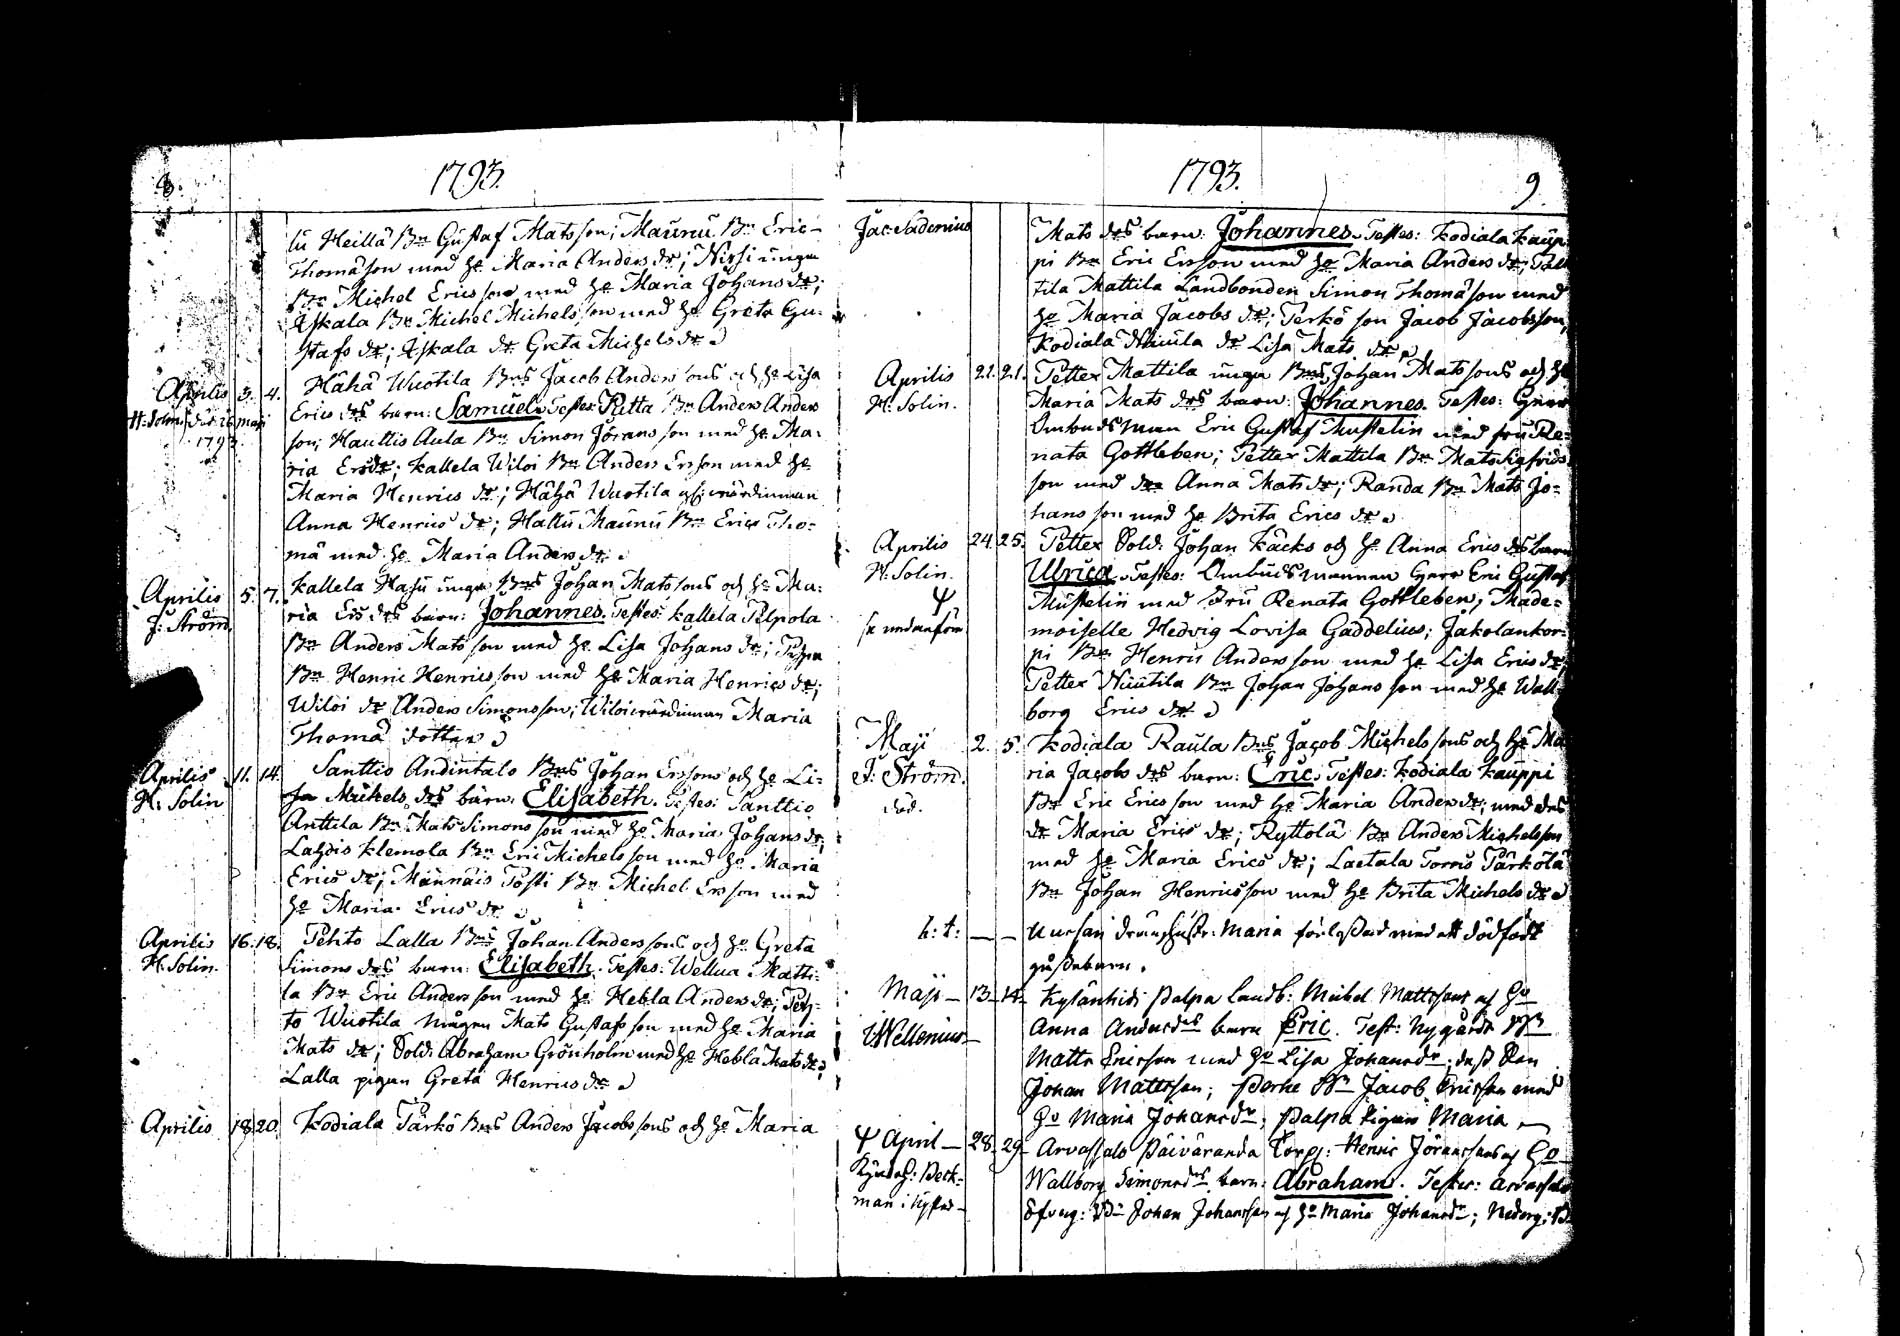 8.
1793.
lu Heillä Bn Gustaf Matsson; Maunu Bn Eric
Thomäson med he Maria Anders dr; Nissi unga
Bn Michel Ericsson med he Maria Johans dr;
Äskala Bn Michel Michelsson med he Greta Gu-
stafs dr; Äskala dr Greta Michels dr
Aprilis 3. 4. Hähä Wuotila Bns Jacob Anders sons och he Lisa
H: Solin. död 26 maji 1793
Erics drs barn: Samuel. Testes: Ritta Bn Anders Anders
son; Hauttis Aula Bn Simon Jörans son med he Ma-
ria Ersdr; Kallela Wiloi Bn Anders Ersson med he
Maria Henrics dr; Hähä Wuotila wärdinnan
Anna Henrics dr; Hallu Maunu Bn Erics Tho-
mä med he Maria Anders dr
Aprilis 5. 7. Kallela Hasu unga Bns Johan Mats sons och he Ma-
J: Ström.
ria Ers drs barn: Johannes. Testes: Kallela Pilpola
Bn Anders Matsson med he Lisa Johans dr;
Bn Henric Henricsson med he Maria Henrics dr;
Wiloi dr Anders Simonsson; Wiloi wärdinnan Maria
Thomä dotter
Aprilis 11. 14. Santtio Andintalo Bns Johan Erssons och he Li-
H: Solin
sa Michels drs barn: Elisabeth. Testes: Santtio
Anttila Bn Mats Simons son med he Maria Johans dr;
Lahdis Klemola Bn Eric Michelsson med he Maria
Erics dr; Männäis Tösti Bn Michel Ersson med
he Maria Erics dr
Aprilis 16. 18. Pehto Lalla Bns Johan Anders sons och he Greta
H: Solin.
Simons drs barn: Elisabeth. Testes: Wellua Matti-
la Bn Eric Anders son med he Hebla Anders dr; Peh-
to Wuotila Mats Gustafs son med he Maria
Mats dr; Sold: Abraham Grönholm med he Hebla Mats dr;
Lalla pigan Greta Henrics dr
Aprilis 18. 20. Kodiala Tärkö Bns Anders Jacobs sons och he Maria
1793.
9.
Jac: Sadenius
Mats drs barn: Johannes. Testes: Kodiala Kaup-
pi Bn Eric Ersson med he Maria Anders dr;
tila Mattila Landbonden Simon Thomäson med
he Maria Jacobs dr; Terkö son Jacob Jacobsson,
Kodiala Nicula dr Lisa Mats dr
Aprilis 21. 21. Tetter Mattila unga Bns Johan Mats sons och he
H: Solin.
Maria Mats drs barn: Johannes. Testes: Herr
Ombudsman Eric Gustaf Mustelin med fru Re-
nata Gottleben; Tetter Mattila Bn Mats Sigfrids
son med dr Anna Mats dr; Randa Bn Mats Jo-
hans son med he Brita Erics dr
Aprilis 24. 25. Tetter Sold: Johan Käcks och he Anna Erics drs barn
H: Solin.
Ulrica. Testes: Ombudsmannen Herr Eric Gustaf
Ψ
Mustelin med Fru Renata Gottleben; Made-
se nedanföre
moiselle Hedvig Lovisa Gaddelius; Jakolankor-
pi Bn Henric Anders son med he Lisa Erics dr;
Tetter Niutila Bn Johan Johans son med he Wall-
borg Erics dr
Maji 2. 5. Kodiala Raula Bns Jacob Michels sons och he Ma
J: Ström.
ria Jacobs drs barn: Eric. Testes: Kodiala Kauppi
död.
Bn Eric Erics son med he Maria Anders dr; med des
dr Maria Erics dr; Ryttölä Bn Anders Michelsson
med he Maria Erics dr; Laetala Torris Pärkölä
Bn Johan Henricsson med he Brita Michels dr
h: t: — — Uussari dränghustr: Maria förlossad med ett dödfödt
gossebarn.
Maji — 13 — 14 — Kylänhidi Palpa Landb: Michel Mattssons och hu
J Wellenius —
Anna Andersdrs barn Eric. Test: Nygårds Bn
Matts Ericsson med hu Lisa Johansdr; dess son
Johan Mattsson; Perke Bn Jacob Ericsson med
hu Maria Johansdr; Palpa pigan Maria
Ψ April — 28. 29 — Arvassalo Päiväranda Torp: Henric Jöranssons och hu
Kyrkoh: Beck-
Wallborg Simonsdrs barn: Abraham. Testes: Arvassalo
man i Kyrko —
Öfverg: Bn Johan Johansson och hu Maria Johansdr; Nederg: B